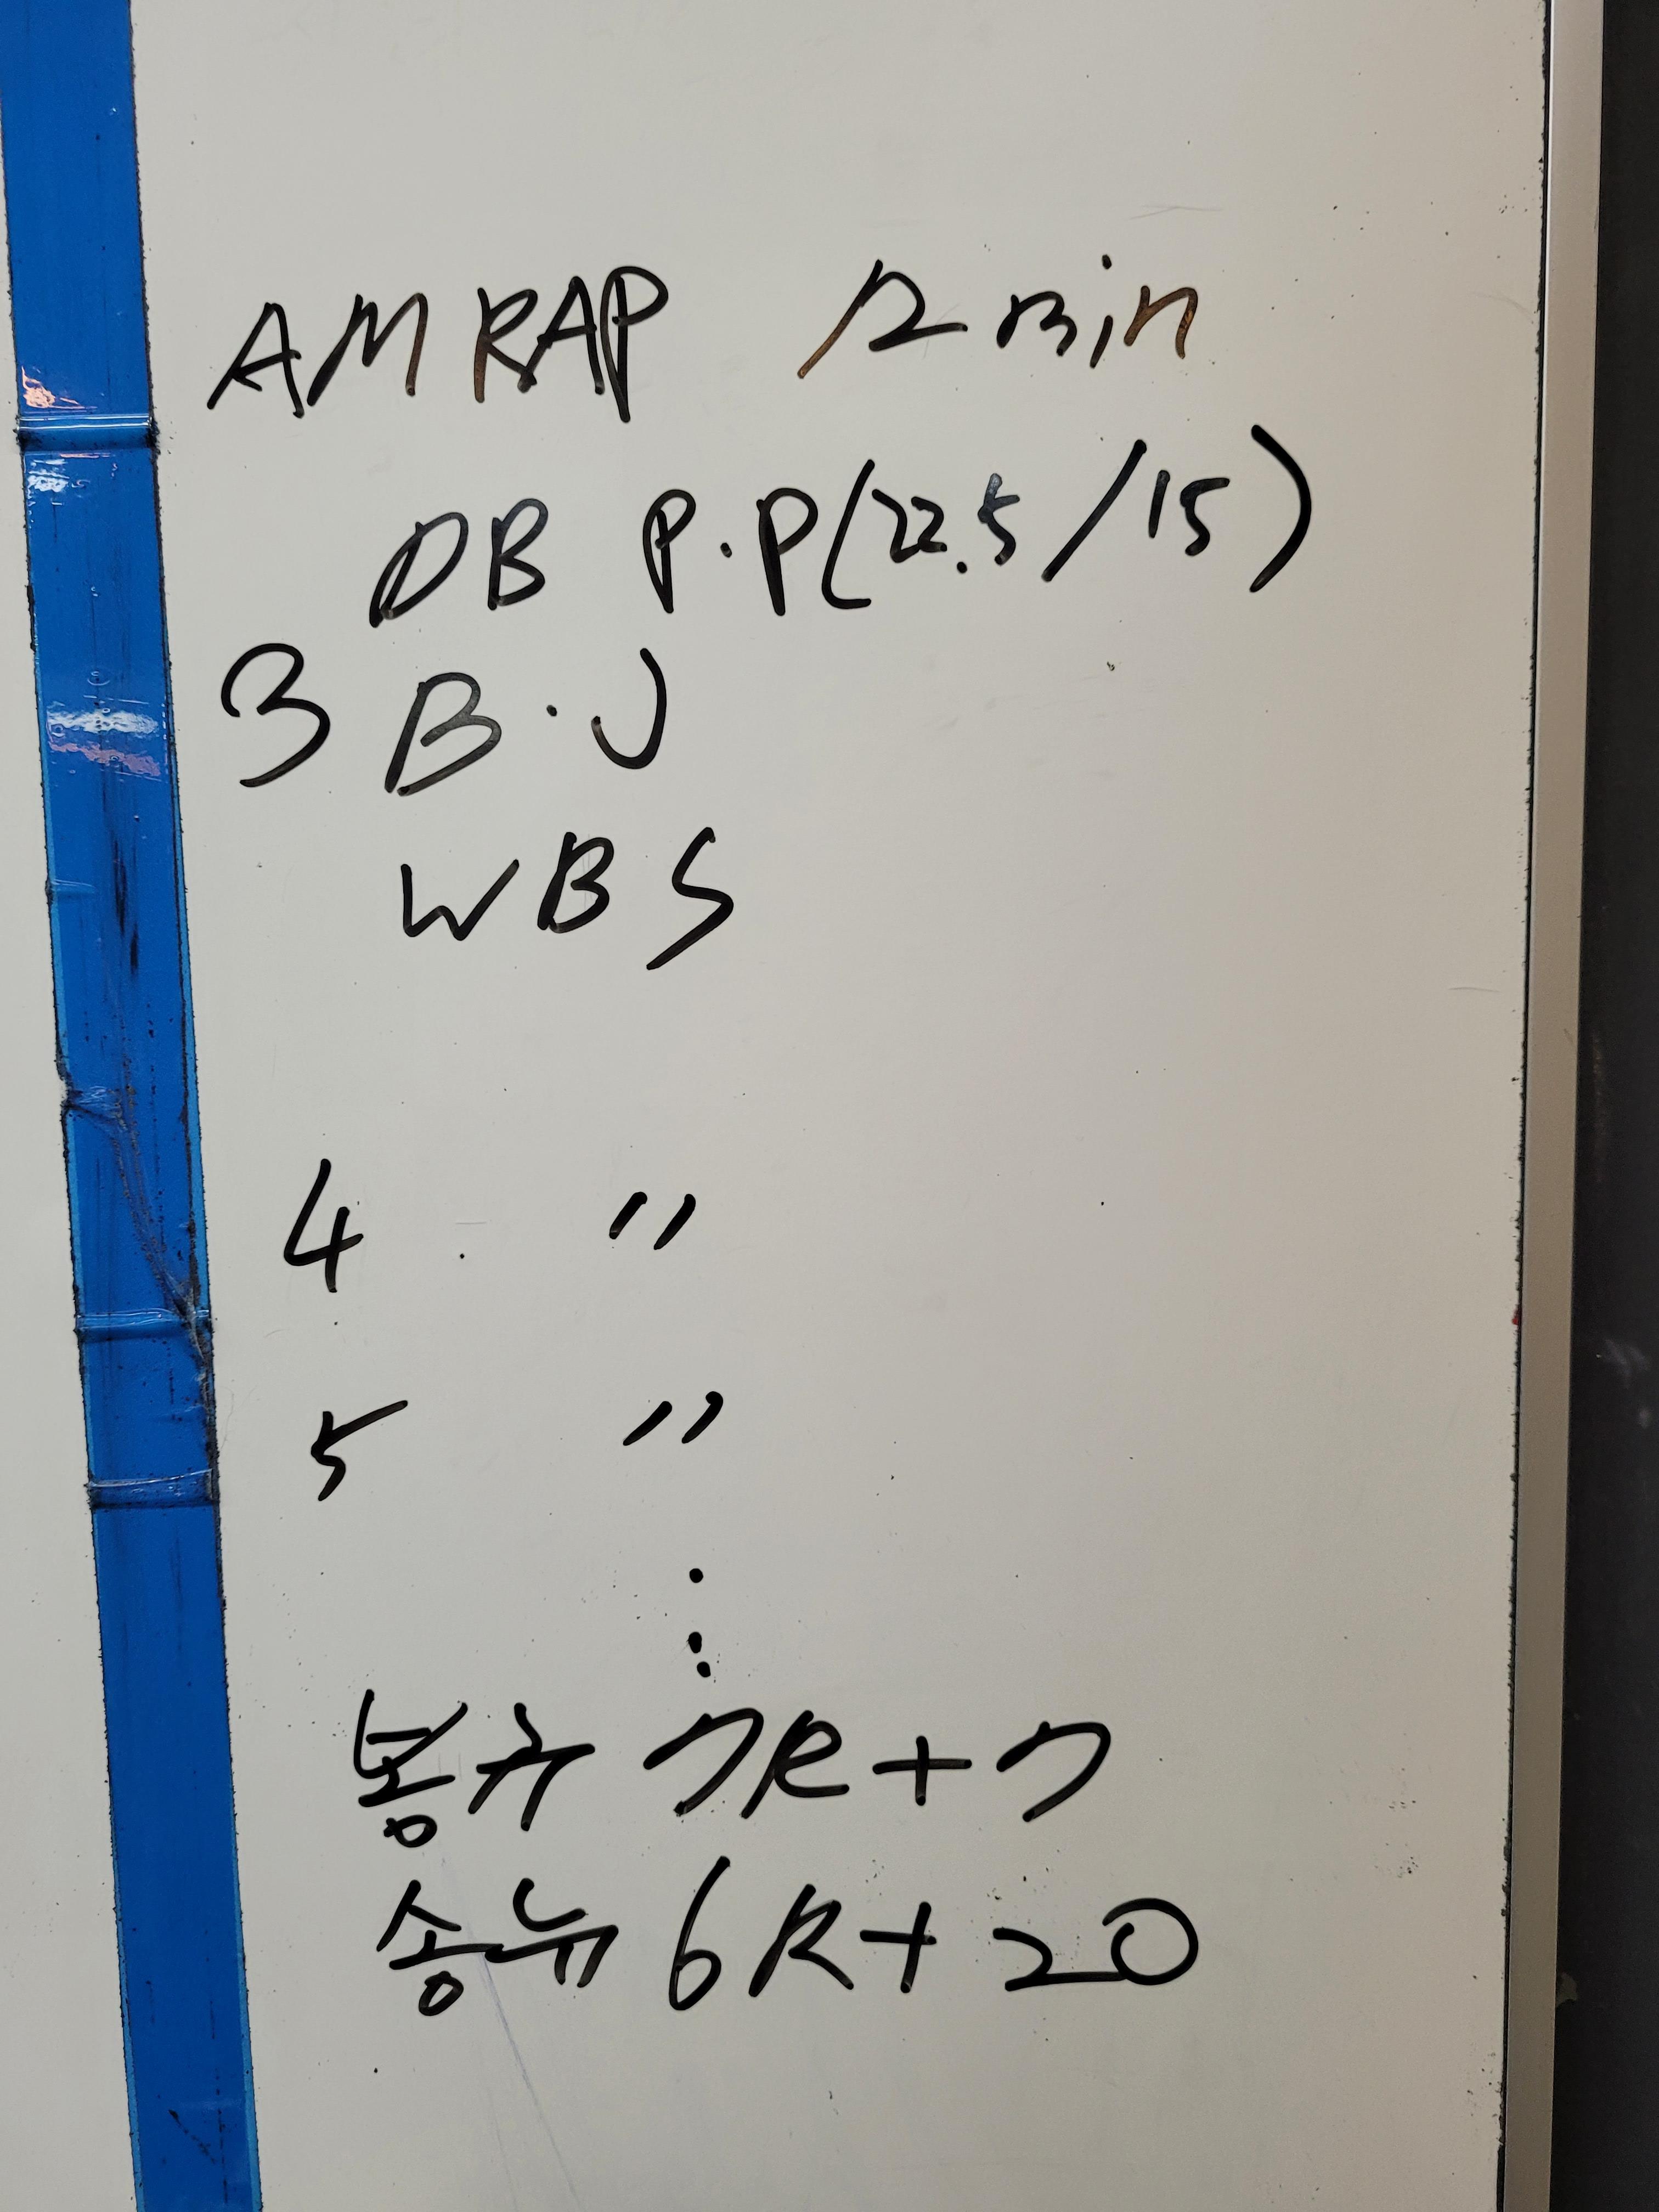 AMRAP 12 min
DB P.P (22.5/15)
3 B.J
WBS
4 〃
5 〃
⋮
봉규 7R+7
송뉴 6R+20